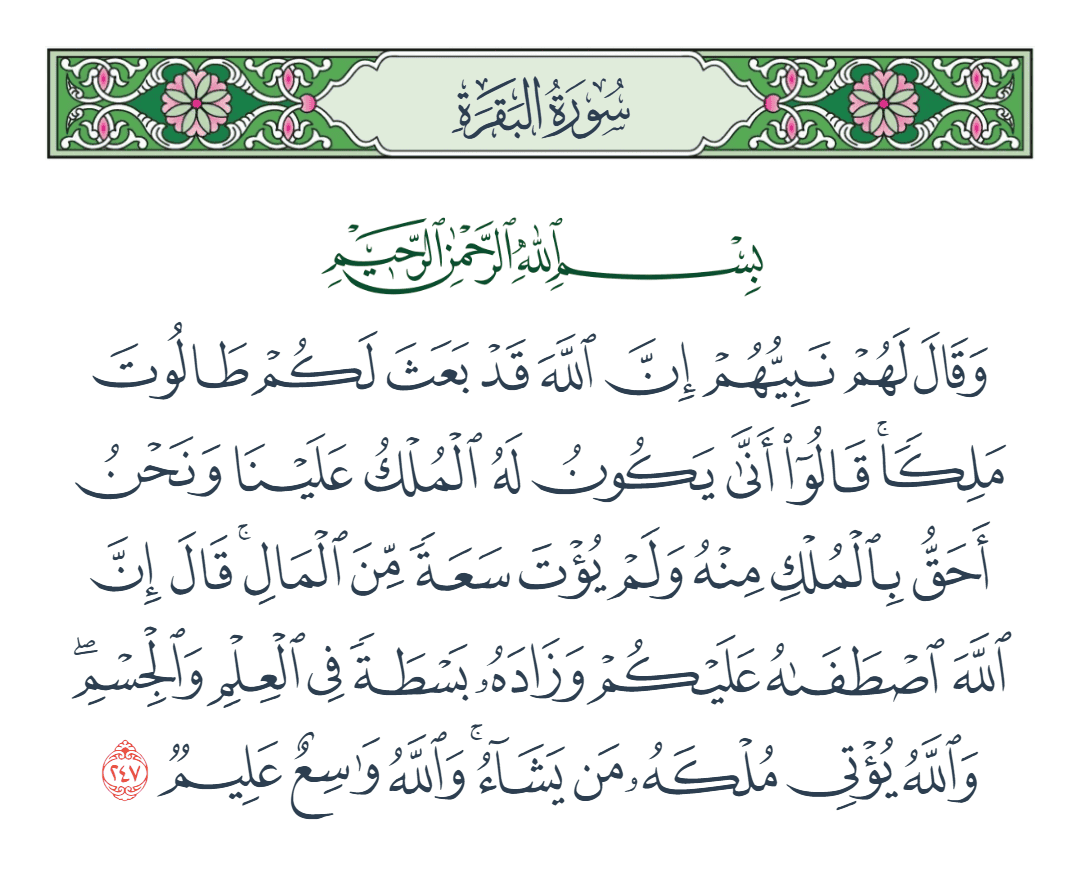 سُورَةُ البَقَرَةِ
بِسْمِ ٱللَّهِ ٱلرَّحْمَٰنِ ٱلرَّحِيمِ
وَقَالَ لَهُمْ نَبِيُّهُمْ إِنَّ ٱللَّهَ قَدْ بَعَثَ لَكُمْ طَالُوتَ
مَلِكًاۚ قَالُوٓا۟ أَنَّىٰ يَكُونُ لَهُ ٱلْمُلْكُ عَلَيْنَا وَنَحْنُ
أَحَقُّ بِٱلْمُلْكِ مِنْهُ وَلَمْ يُؤْتَ سَعَةً مِّنَ ٱلْمَالِۚ قَالَ إِنَّ
ٱللَّهَ ٱصْطَفَىٰهُ عَلَيْكُمْ وَزَادَهُۥ بَسْطَةً فِى ٱلْعِلْمِ وَٱلْجِسْمِۖ
وَٱللَّهُ يُؤْتِى مُلْكَهُۥ مَن يَشَآءُۚ وَٱللَّهُ وَٰسِعٌ عَلِيمٌ ٢٤٧